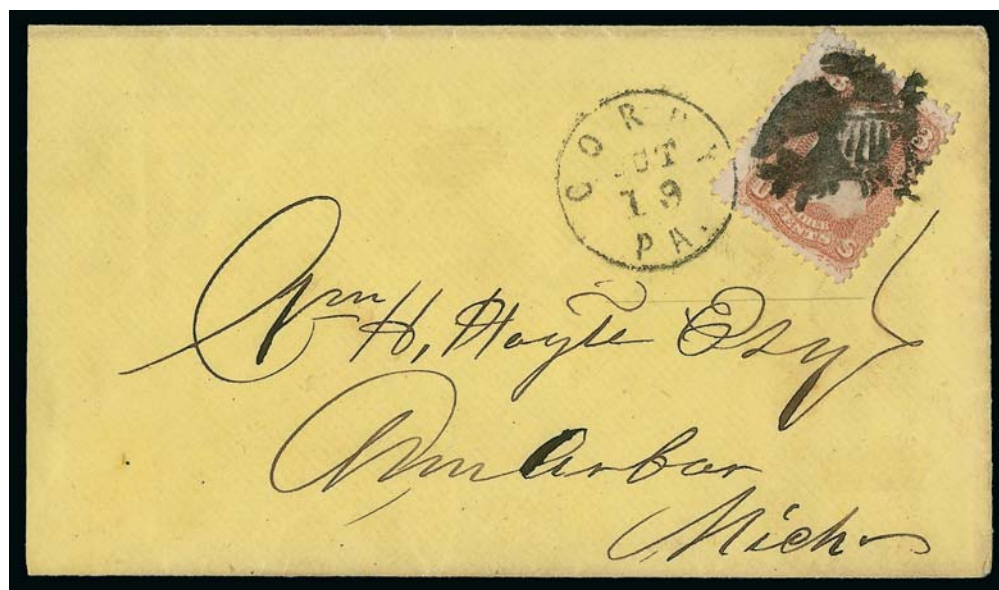 CORRY
OCT
19
PA.
Wm H. Hoyte Esq
Ann Arbor
Mich